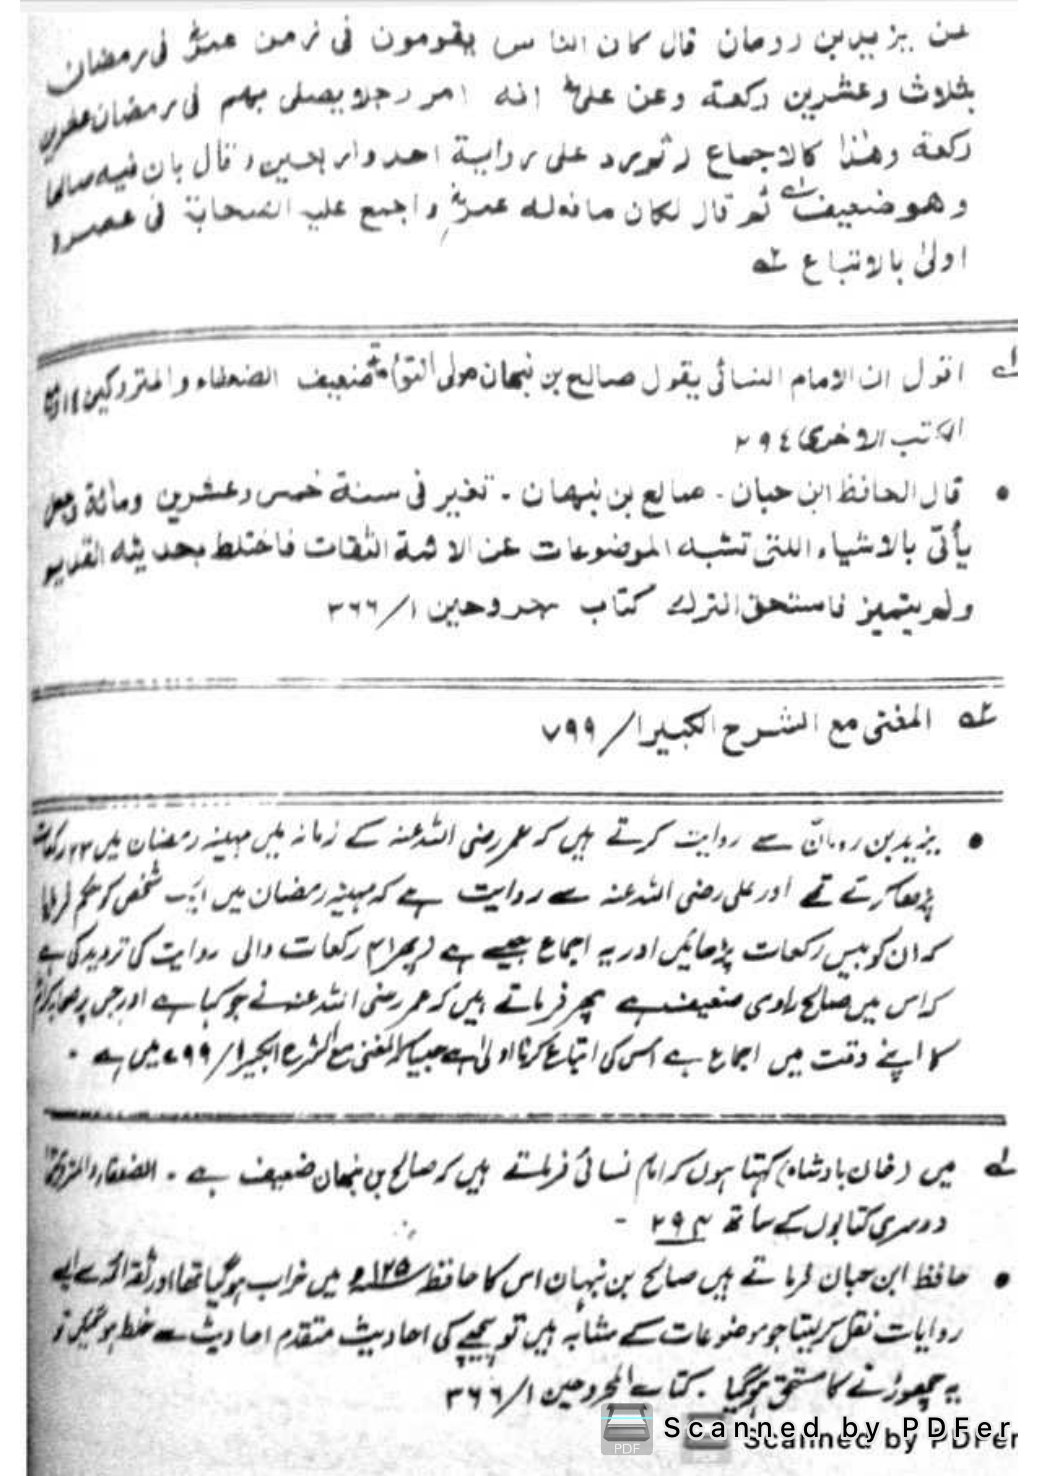 عن يزيد بن رومان قال كان الناس يقومون فى زمن عمرؓ فى رمضان
بثلاث وعشرين ركعة وعن علىؓ انه امر رجلا يصلى بهم فى رمضان عشرين
ركعة وهذا كالاجماع ثم يرد على رواية احد واربعين وقال بان فيه صالحا
وهو ضعيف لے ثم قال لكان ما فعله عمرؓ واجمع عليه الصحابة فى عصره
اولىٰ بالاتباع ٢ے
لے اقول ان الامام النسائى يقول صالح بن نبهان مولى التوأمة ضعيف الضعفاء والمتروكين
الكتب الاخرى ٢٩٤
• قال الحافظ ابن حبان - صالح بن نبهان - تغير فى سنة خمس وعشرين ومائة وجعل
يأتى بالاشياء اللتى تشبه الموضوعات عن الائمة الثقات فاختلط بحديثه القديم
ولم يتميز فاستحق الترك كتاب مجروحين ١/٣٦٦
٢ے المغنى مع الشرح الكبير ١/٧٩٩
• یزید بن رومانؒ سے روایت کرتے ہیں کہ عمر رضی اللہ عنہ کے زمانہ میں مہینہ رمضان میں ٢٣ رکعات
پڑھا کرتے تھے اور علی رضی اللہ عنہ سے روایت ہے کہ مہینہ رمضان میں ایک شخص کو حکم فرمایا
کہ ان کو بیس رکعات پڑھائیں اور یہ اجماع جیسے ہے (پھر ٤١ رکعات والی روایت کی تردید کی ہے
کہ اس میں صالح راوی ضعیف ہے پھر فرماتے ہیں کہ عمر رضی اللہ عنہ نے جو کیا ہے اور جس پر صحابہ کرام
کا اپنے وقت میں اجماع ہے اس کی اتباع کرنا اولیٰ ہے جیسا کہ المغنی مع الشرح الکبیر ١/٧٩٩ میں ہے ۔
لے میں (خان بادشاہ) کہتا ہوں کہ امام نسائی فرماتے ہیں کہ صالح بن نبہان ضعیف ہے ۔ الضعفاء والمتروکین
دوسری کتابوں کے ساتھ ٢٩٤ -
• حافظ ابن حبان فرماتے ہیں صالح بن نبہان اس کا حافظہ ١٢٥ھ میں خراب ہوگیا تھا اور ثقہ ائمہ سے ایسے
روایات نقل کر لیتا جو موضوعات کے مشابہ ہیں تو پیچھے کی احادیث متقدم احادیث سے خلط ہو گیں تو
یہ چھوڑنے کا مستحق ہوگیا ۔ کتاب المجروحین ١/٣٦٦
PDF Scanned by PDFer
Scanned by PDFer